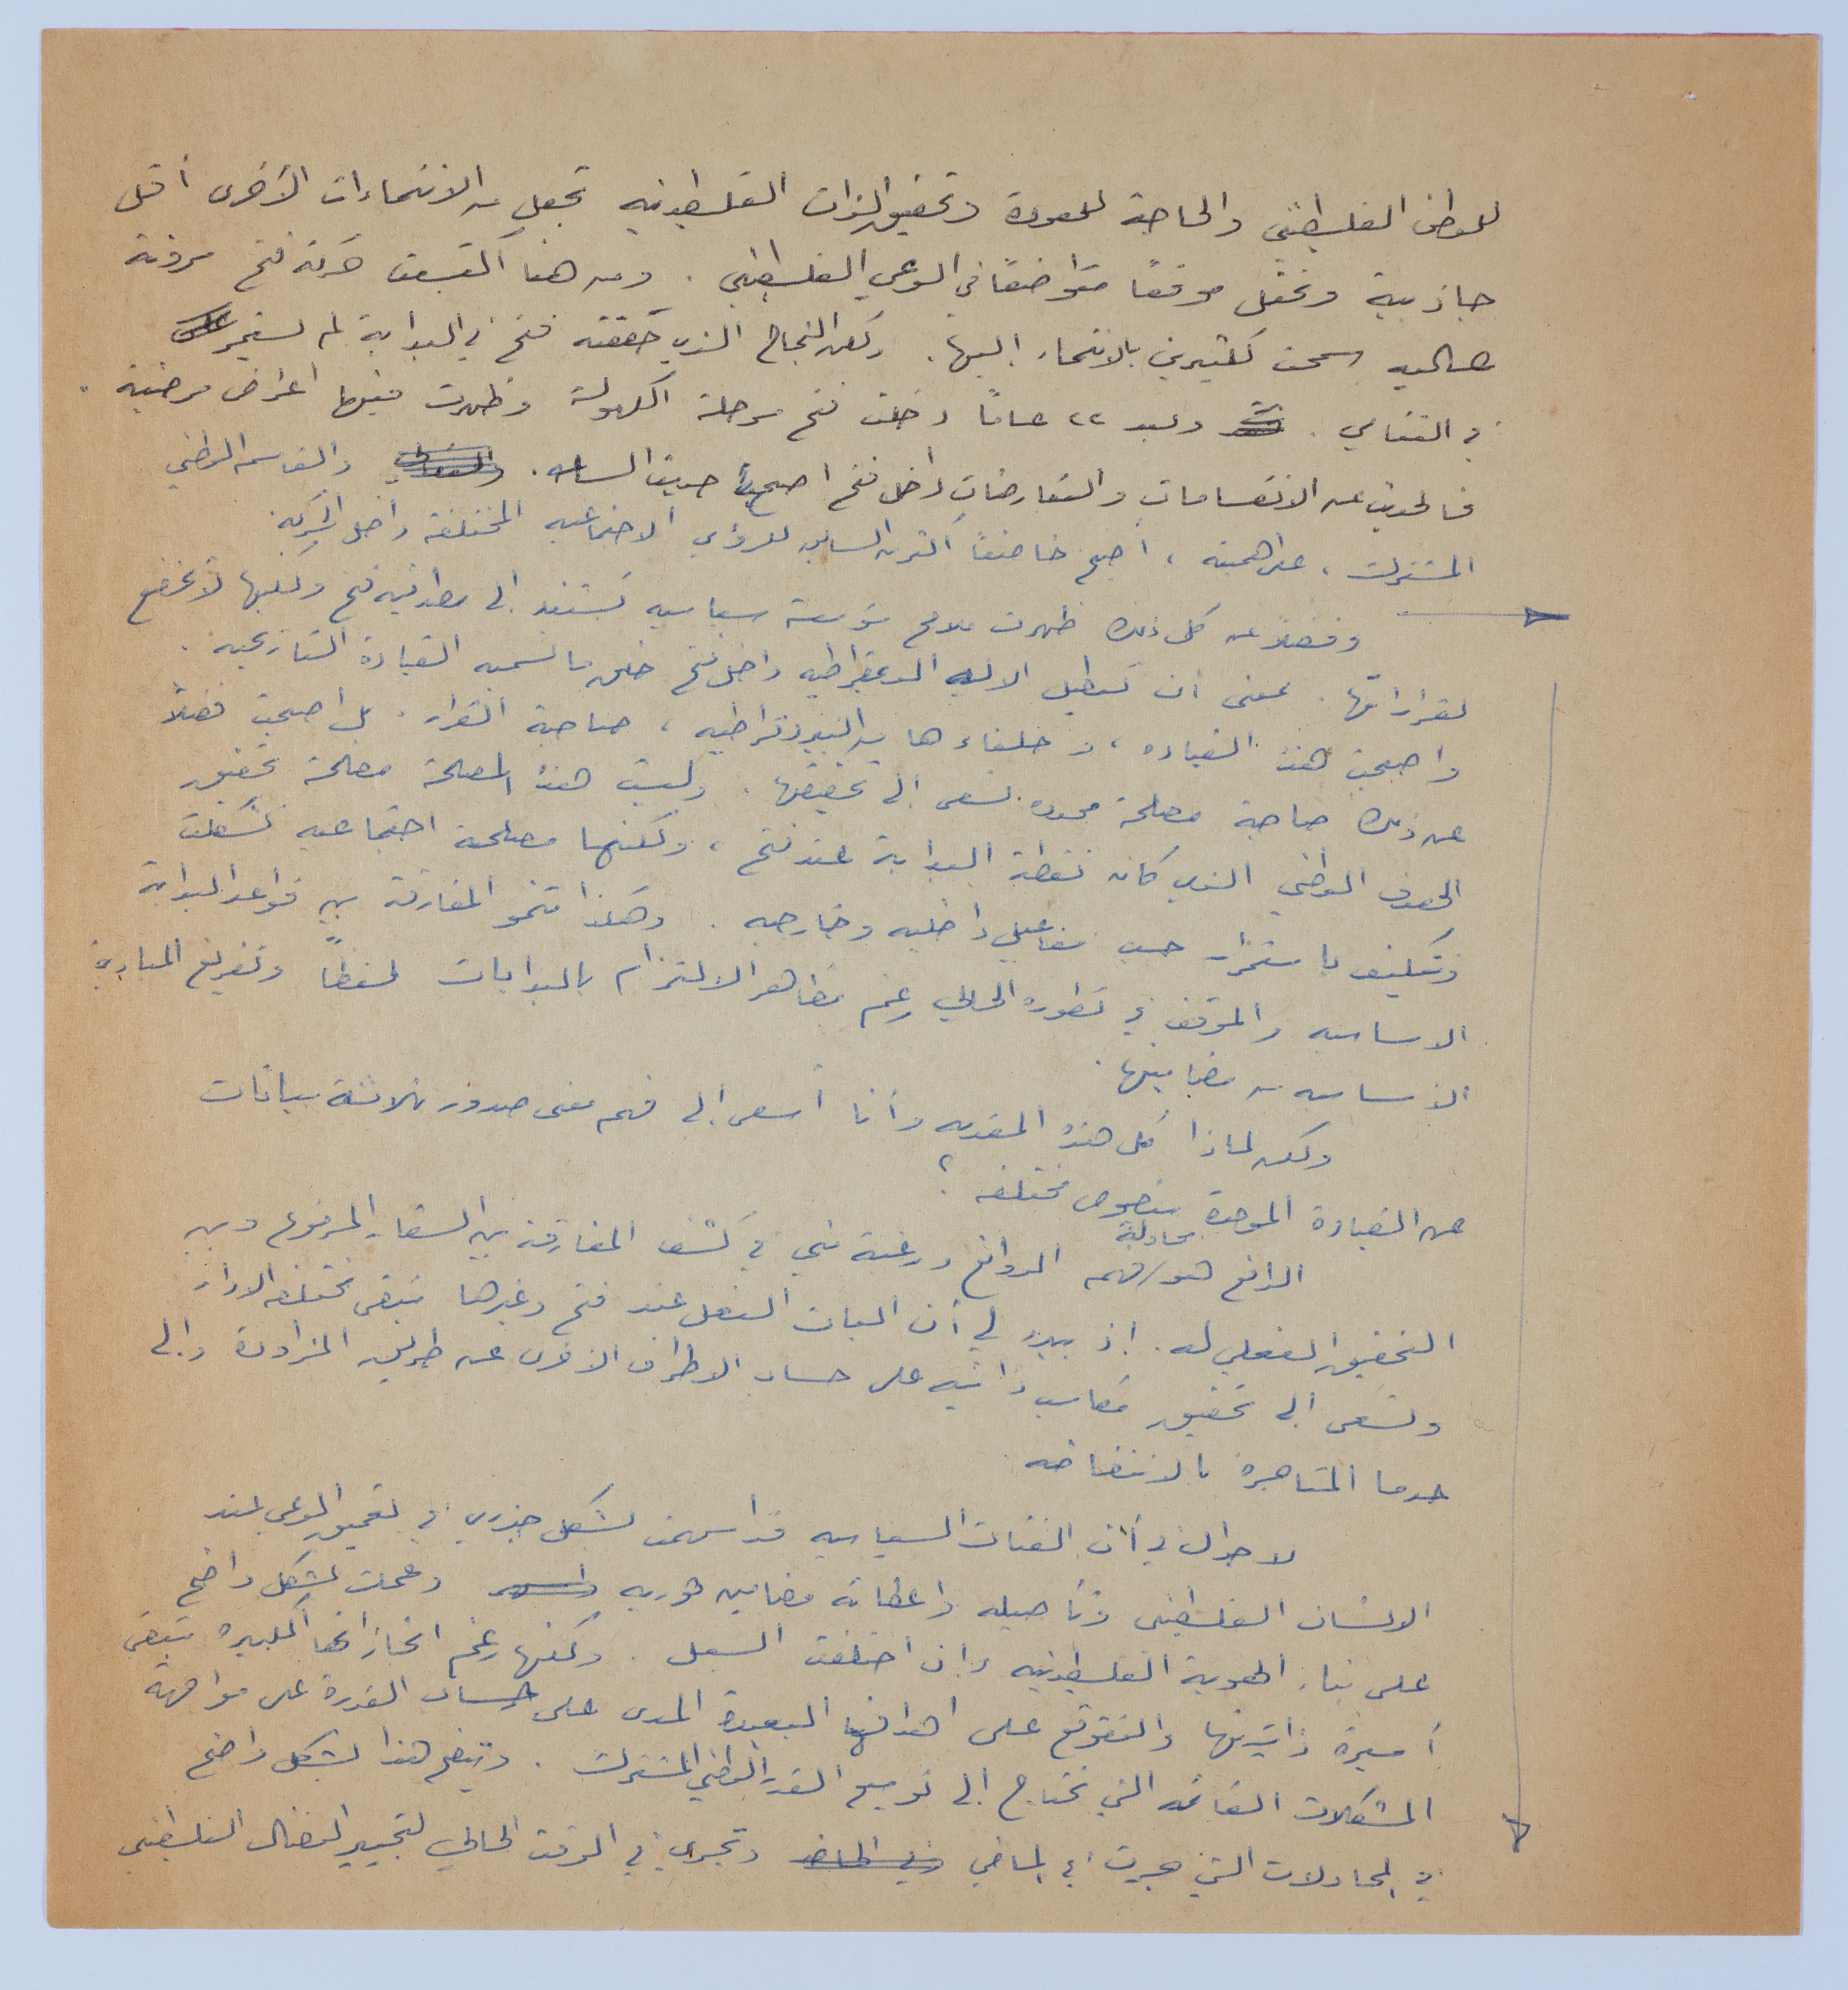 للوطن الفلسطيني والحاجة للعودة وتحقيق الذات الفلسطينيه تجعل من الانتماءات الأخرى أقل
جاذبية وتحتل موقعًا متواضعًا في الوعي الفلسطيني . ومن هنا اكتسبت حركة فتح مرونة
عاليه سمحت لكثيرين بالانتماء إليها . ولكن النجاح الذي حققته فتح في البداية لم يستمر
في التنامي . وبعد ٢٢ عامًا دخلت فتح مرحلة الكهولة وظهرت فيها اعراض مرضية .
فالحديث عن الانقسامات والتعارضات داخل فتح اصبح حديث الساعه . والقاسم الوطني
المشترك ، على اهميته ، أصبح خاضعًا أكثر من السابق للرؤى الاجتماعيه المختلفة داخل الحركة .
وفضلاً عن كل ذلك ظهرت ملامح مؤسسة سياسيه تستند إلى مصداقية فتح ولكنها لا تخضع
لقراراتها . بمعنى ان تعطيل الاليه الديمقراطيه داخل فتح خلق ما نسميه القيادة التاريخيه .
واصبحت هذه القياده ، وحلفاءها من البيروقراطيه ، صاحبة القرار . بل اصبحت فضلاً
عن ذلك صاحبة مصلحة محدده تسعى إلى تحقيقها . وليست هذه المصلحة مصلحة تحقيق
الهدف الوطني الذي كان نقطة البداية عند فتح ، ولكنها مصلحة اجتماعيه تشكلت
وتكيفت باستمرار حسب تفاعيل داخليه وخارجيه . وهكذا تنمو المفارقة بين قواعد البداية
الاساسيه والموقف في تطوره الحالي رغم مظاهر الالتزام بالبدايات لفظًا وتفريغ المبادئ
الاساسيه من مضامينها .
ولكن لماذا كل هذه المقدمه وأنا أسعى إلى فهم معنى صدور ثلاثة بيانات
عن القيادة الموحدة بنصوص مختلفه ؟
الدافع هو محاولة فهم الدوافع ورغبة مني في كشف المفارقة بين الشعار المرفوع وبين
التحقيق الفعلي له . إذ يبدو لي أن اليات الفعل عند فتح وغيرها تبقى مختلفه الادوار
وتسعى إلى تحقيق مكاسب ذاتيه على حساب الاطراف الاخرى عن طريق المزاودة وإلى
حد ما المتاجرة بالانتفاضه .
لا جدال في أن الفئات السياسيه قد أسهمت بشكل جذري في تعميق الوعي عند
الانسان الفلسطيني وتأصيله واعطائه مضامين ثوريه وعملت بشكل واضح
على بناء الهوية الفلسطينيه وإن اختلفت السبل . ولكنها رغم انجازاتها الكبيره تبقى
أسيرة ذاتيتها والتقوقع على اهدافها البعيدة المدى على حساب القدرة على مواجهة
المشكلات القائمه التي تحتاج إلى توسيع القدر الوطني المشترك . ويتضح هذا بشكل واضح
في المحاولات التي جرت في الماضي وتجري في الوقت الحالي لتجيير النضال الفلسطيني